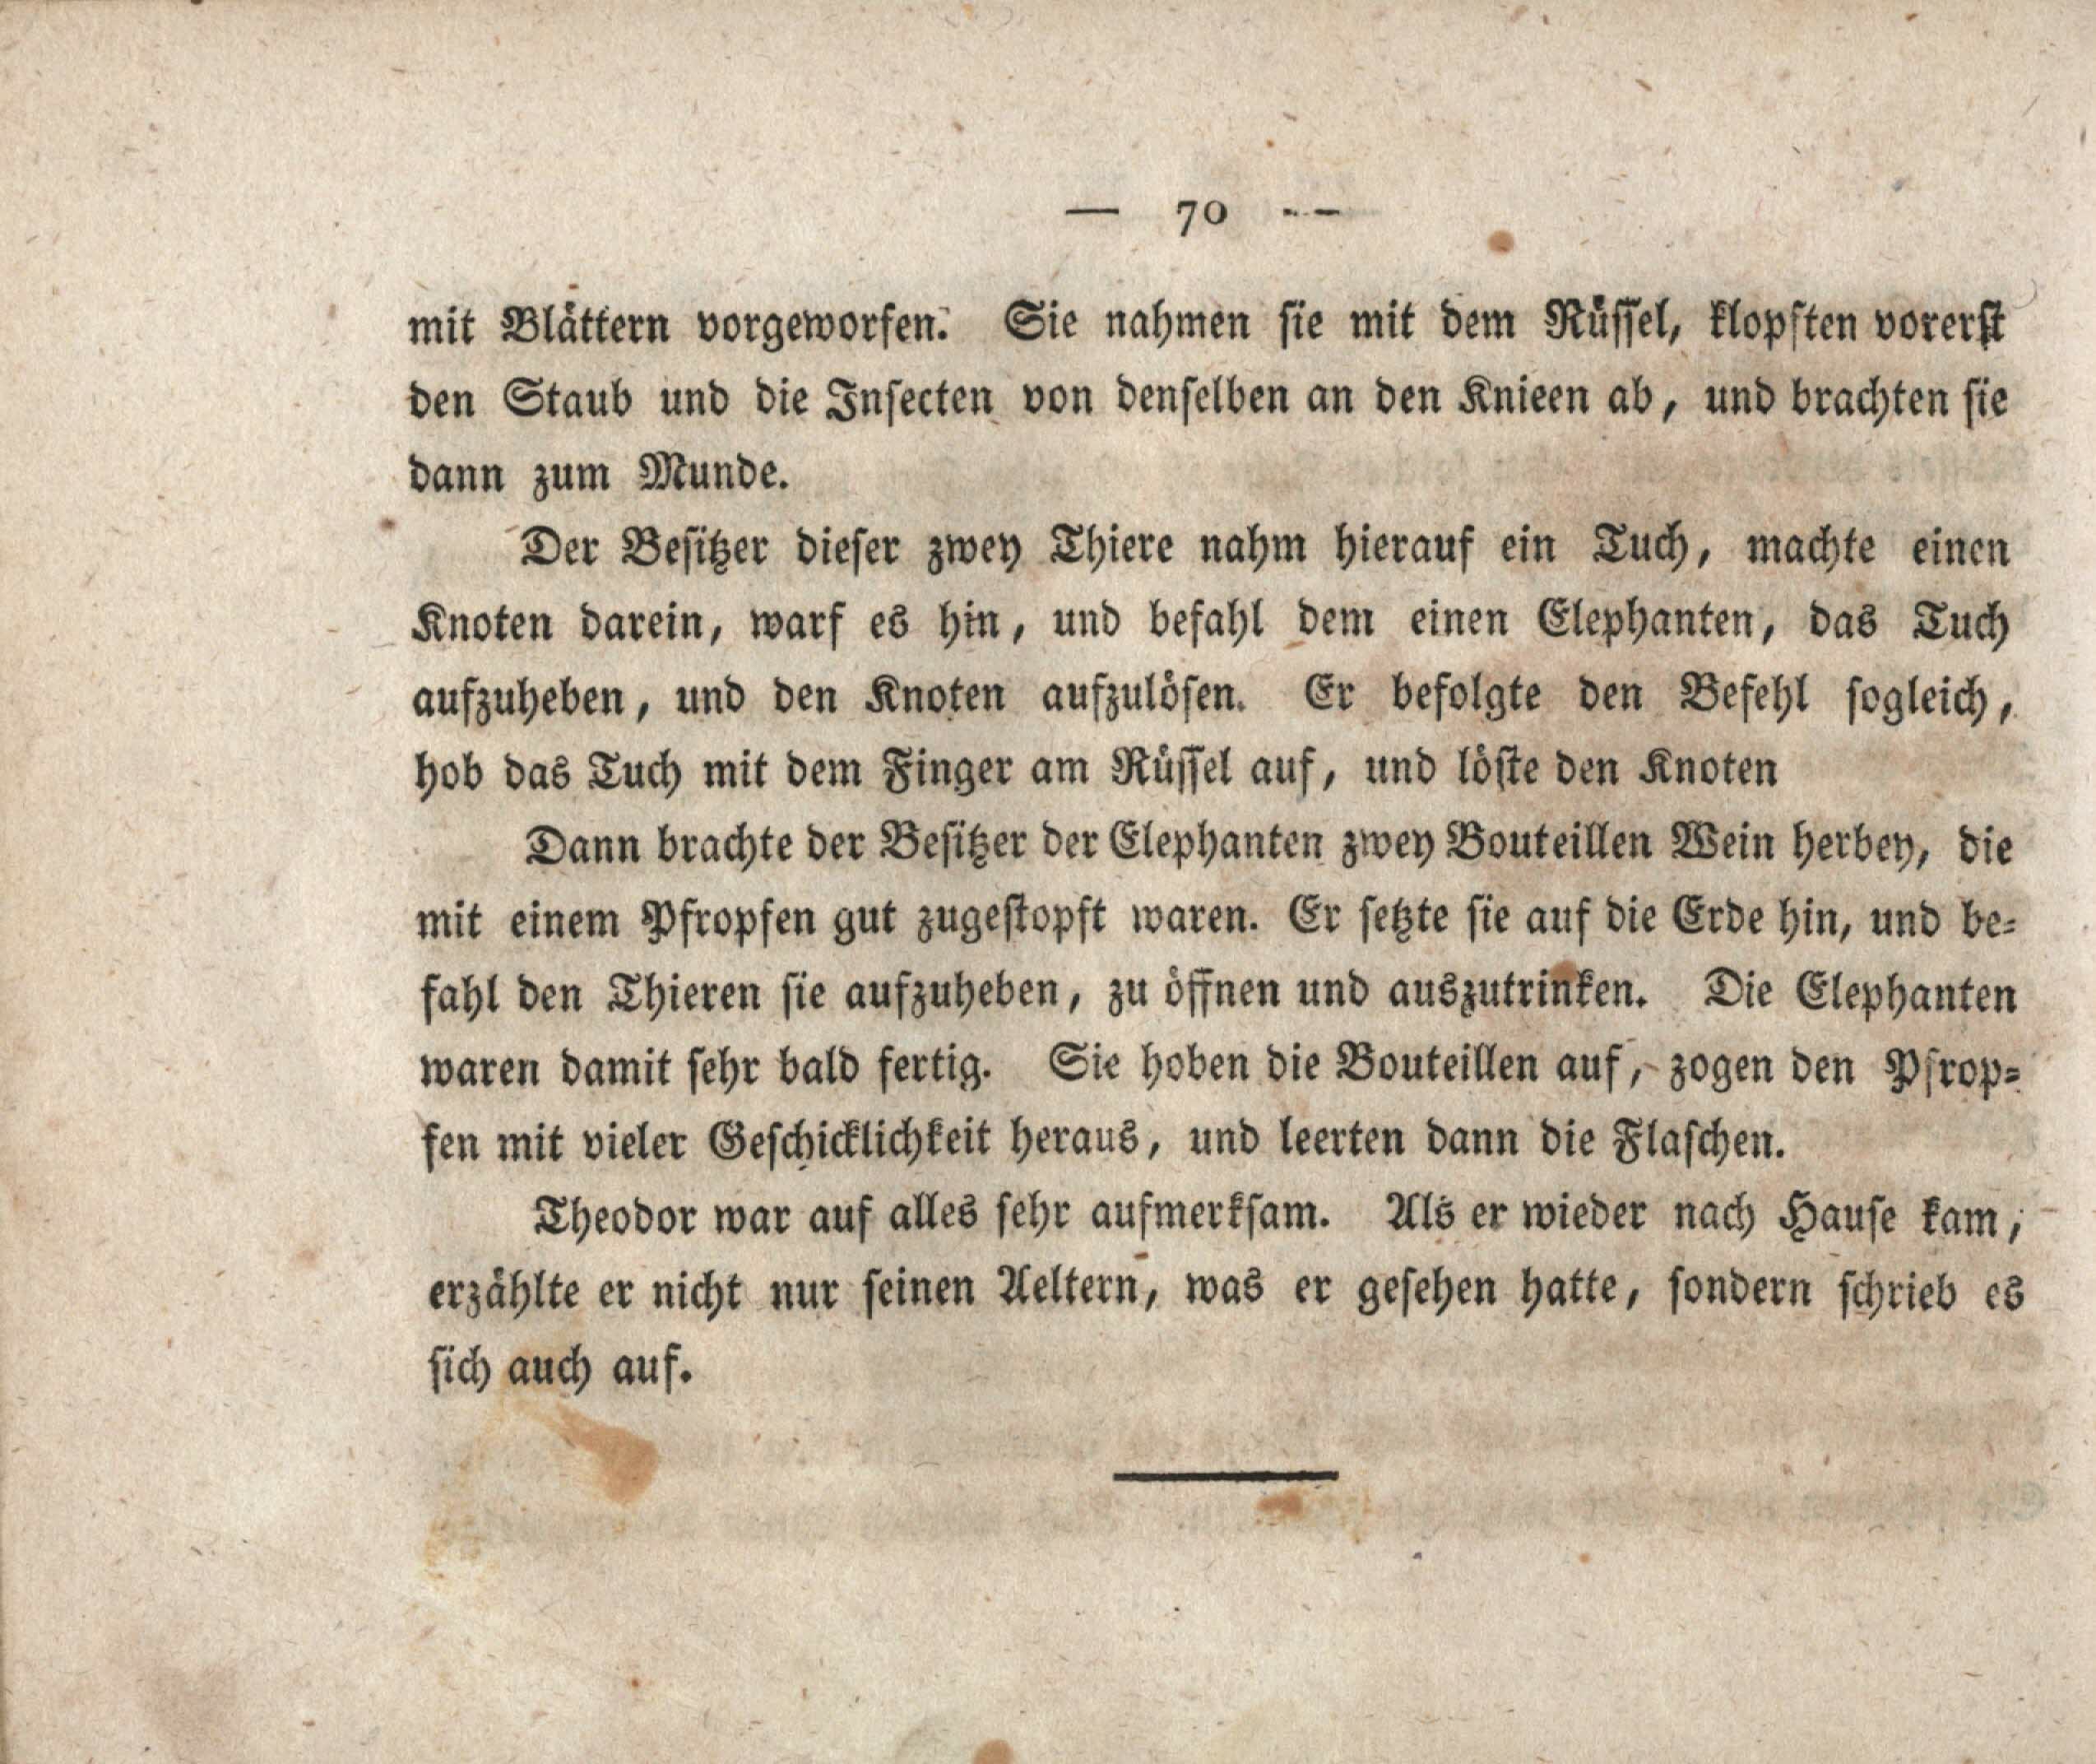 — 70 —
mit Blättern vorgeworfen. Sie nahmen sie mit dem Rüssel, klopften vorerst
den Staub und die Insecten von denselben an den Knieen ab, und brachten sie
dann zum Munde.
Der Besitzer dieser zwey Thiere nahm hierauf ein Tuch, machte einen
Knoten darein, warf es hin, und befahl dem einen Elephanten, das Tuch
aufzuheben, und den Knoten aufzulösen. Er befolgte den Befehl sogleich,
hob das Tuch mit dem Finger am Rüssel auf, und löste den Knoten
Dann brachte der Besitzer der Elephanten zwey Bouteillen Wein herbey, die
mit einem Pfropfen gut zugestopft waren. Er setzte sie auf die Erde hin, und be-
fahl den Thieren sie aufzuheben, zu öffnen und auszutrinken. Die Elephanten
waren damit sehr bald fertig. Sie hoben die Bouteillen auf, zogen den Pfrop-
fen mit vieler Geschicklichkeit heraus, und leerten dann die Flaschen.
Theodor war auf alles sehr aufmerksam. Als er wieder nach Hause kam,
erzählte er nicht nur seinen Aeltern, was er gesehen hatte, sondern schrieb es
sich auch auf.